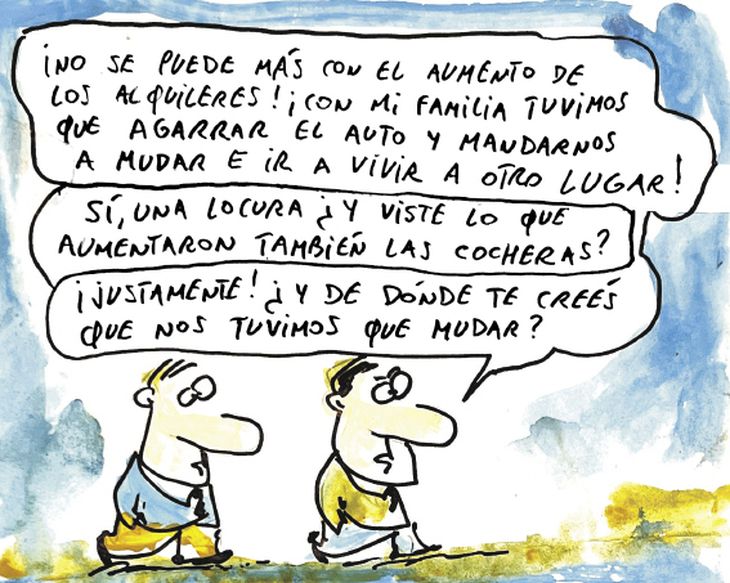 ¡NO SE PUEDE MÁS CON EL AUMENTO DE
LOS ALQUILERES! ¡CON MI FAMILIA TUVIMOS
QUE AGARRAR EL AUTO Y MANDARNOS
A MUDAR E IR A VIVIR A OTRO LUGAR!
SÍ, UNA LOCURA ¿Y VISTE LO QUE
AUMENTARON TAMBIÉN LAS COCHERAS?
¡JUSTAMENTE! ¿Y DE DÓNDE TE CREÉS
QUE NOS TUVIMOS QUE MUDAR?